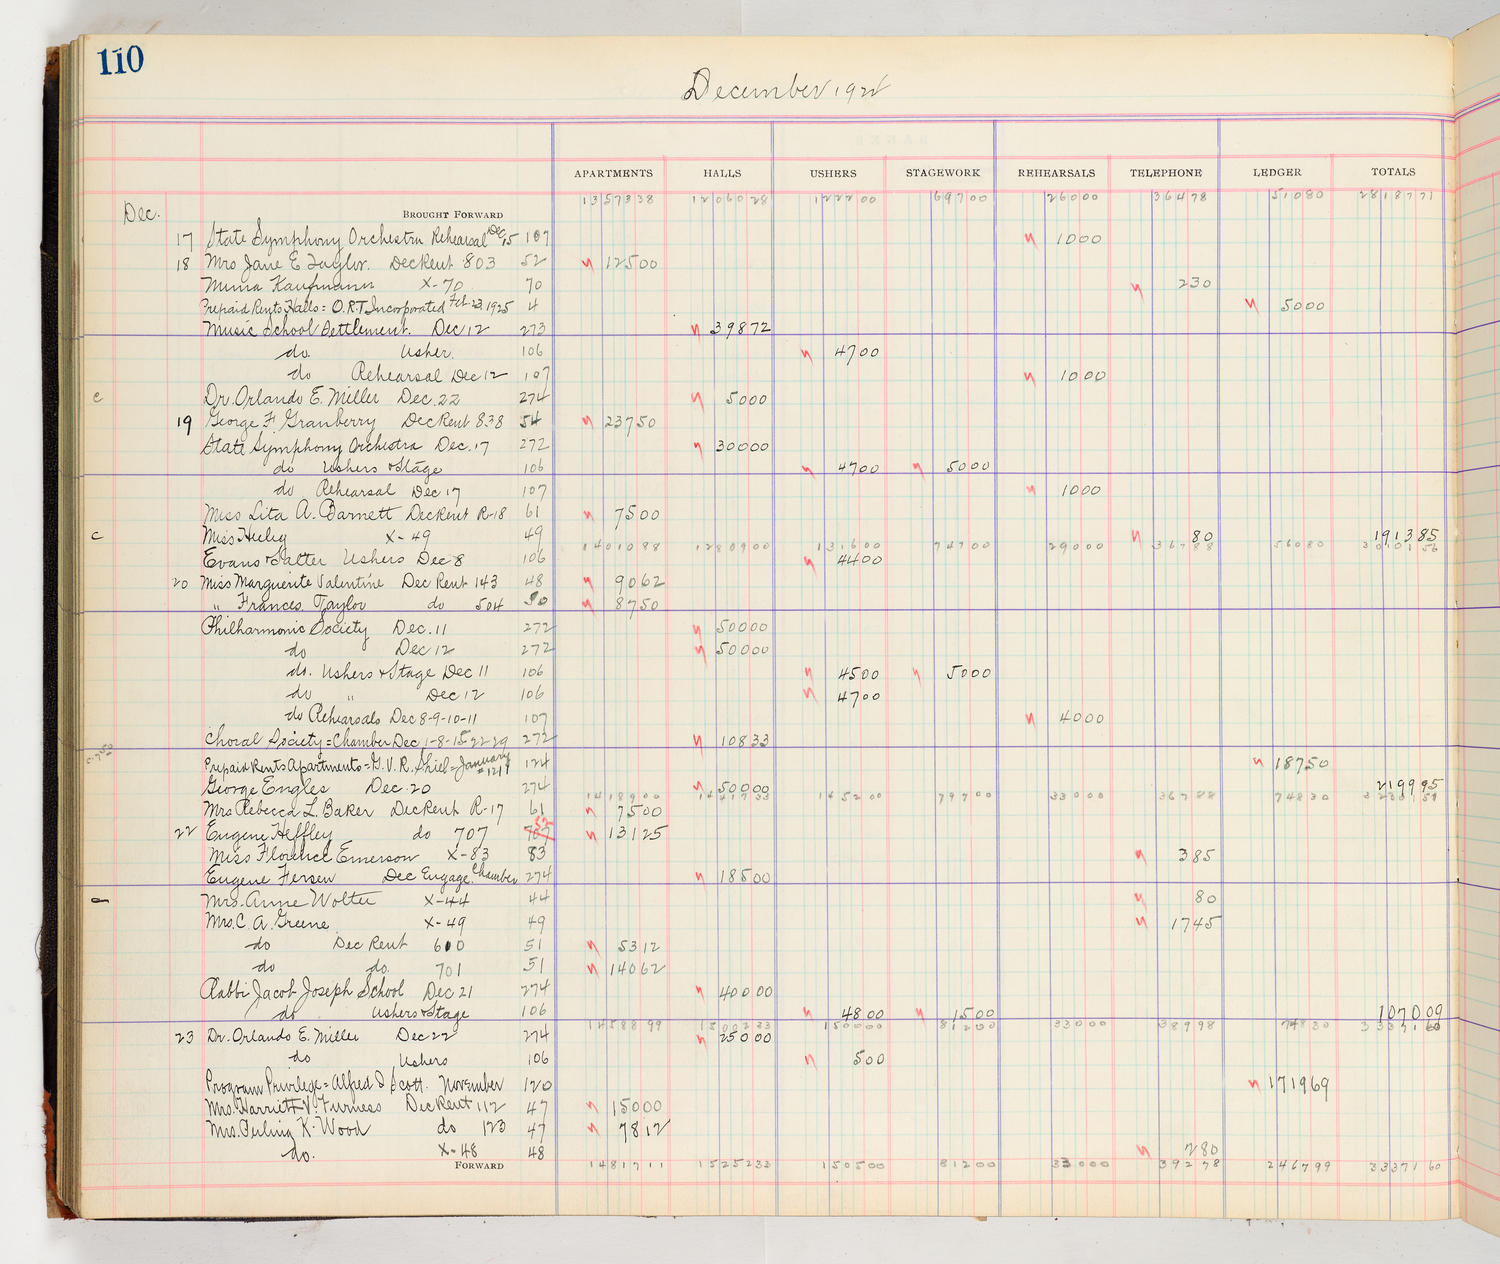 110
December 1924
APARTMENTS HALLS USHERS STAGEWORK REHEARSALS TELEPHONE LEDGER TOTALS
Dec. BROUGHT FORWARD 1357338 1206028 122200 69700 26000 36478 51080 2818771
17 State Symphony Orchestra Rehearsal Dec 15 107 1000
18 Mrs Jane E Taylor. Dec Rent 803 52 12500
Mima Kaufmann X-70 70 230
Prepaid Rents Halls = O.R.T Incorporated Feb. 23, 1925 4 5000
Music School Settlement. Dec 12 273 39872
do. Usher. 106 4700
do Rehearsal Dec 12 107 1000
c Dr. Orlando E. Miller Dec. 22 274 5000
19 George F. Granberry Dec Rent 838 54 23750
State Symphony Orchestra Dec. 17 272 30000
do Ushers & Stage 106 4700 5000
do Rehearsal Dec 17 107 1000
Miss Lita A. Barnett Dec Rent R-18 61 7500
c Miss Huly X-49 49 80 191385
1401088 1280900 131600 74700 29000 36788 56080 3010156
Evans & Salter Ushers Dec 8 106 4400
20 Miss Marguerite Valentine Dec Rent 143 48 9062
" Frances Taylor do 504 50 8750
Philharmonic Society Dec. 11 272 50000
do Dec 12 272 50000
do. Ushers & Stage Dec 11 106 4500 5000
do " Dec 12 106 4700
do Rehearsals Dec 8-9-10-11 107 4000
Choral Society = Chamber Dec 1-8-15-22-29 272 10833
Prepaid Rents Apartments = G. V. R. Shiel = January #1211 124 18750
George Engles Dec. 20 274 50000 219995
1418900 1441733 145200 79700 33000 36788 74830 3230151
Mrs Rebecca L. Baker Dec Rent R-17 61 7500
22 Eugene Heffley do 707 707 52 13125
Miss Florence Emerson X-83 83 385
Eugene Fersen Dec Engage. Chamber 274 18500
Mrs. Anne Wolter X-44 44 80
Mrs. C. A. Greene X-49 49 1745
do Dec Rent 600 51 5312
do do. 701 51 14062
Rabbi Jacob Joseph School Dec 21 274 40000
do Ushers & Stage 106 4800 1500 107009
1458899 1500233 150000 81200 33000 38998 74830 3337160
23 Dr. Orlando E. Miller Dec 22 274 25000
do Ushers 106 500
Program Privilege = Alfred Scott. November 120 171969
Mrs. Harriett V. Furness Dec Rent 112 47 15000
Mrs. Perling K. Wood do 123 47 7812
do. X-48 48 280
FORWARD 1481711 1525233 150500 81200 33000 39278 246799 3337160